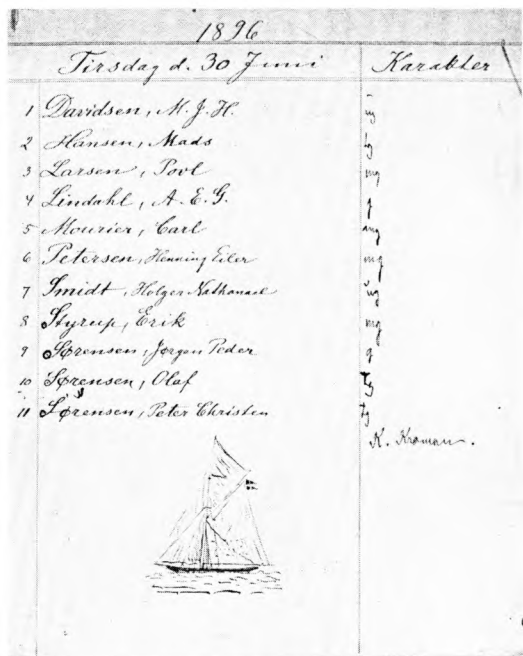 1896
Tirsdag d. 30 Juni Karakter
1 Davidsen, M. J. H. ug
2 Hansen, Mads tg
3 Larsen, Povl mg
4 Lindahl, A. E. G. g
5 Mourier, Carl mg
6 Petersen, Henning Eiler mg
7 Smidt, Holger Nathanael ug
8 Styrup, Erik mg
9 Sørensen, Jørgen Peder g
10 Sørensen, Olaf tg
11 Sørensen, Peter Christen tg
K. Kroman.